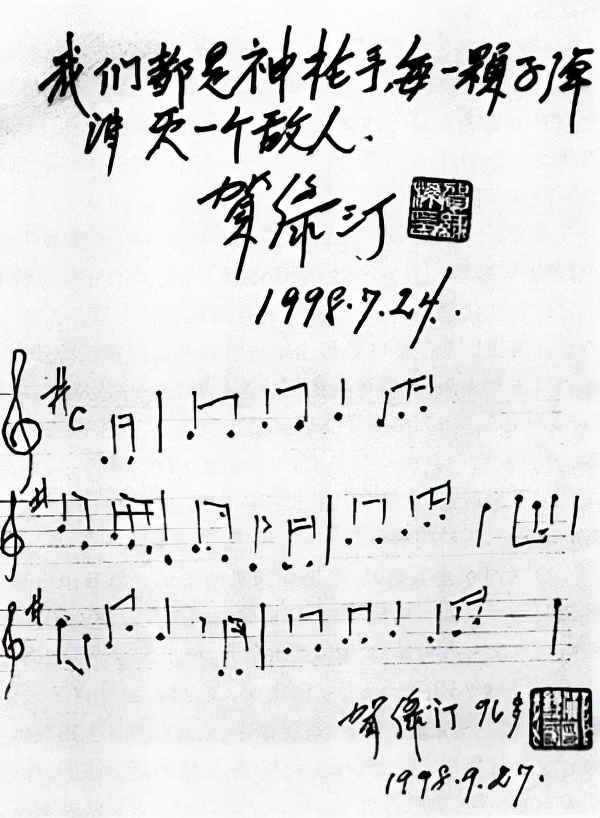 我们都是神枪手,每一顆子弹
消灭一个敌人.
賀绿汀
1998.7.24.
C
賀绿汀 96岁
1998.9.27.